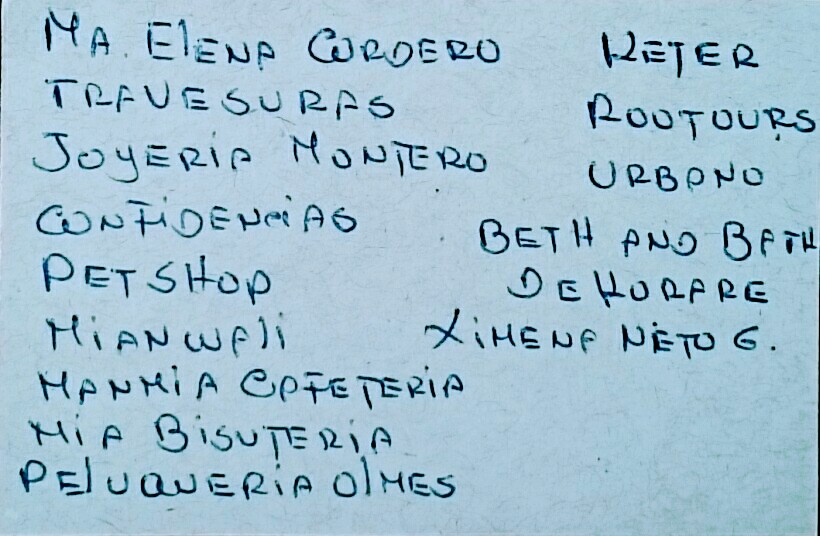 MA. ElENA CORDERO
TRAVESURAS
JOYERIA MONTERO
CONFIDENCIAS
PET SHOP
MIANWALI
MANMIA CAFETERIA
MIA BISUTERIA
PElUQUERIA OlMES
KETER
ROOTOURS
URBANO
BETH AND BATH
DEKORARE
XIMENA NIETO G.